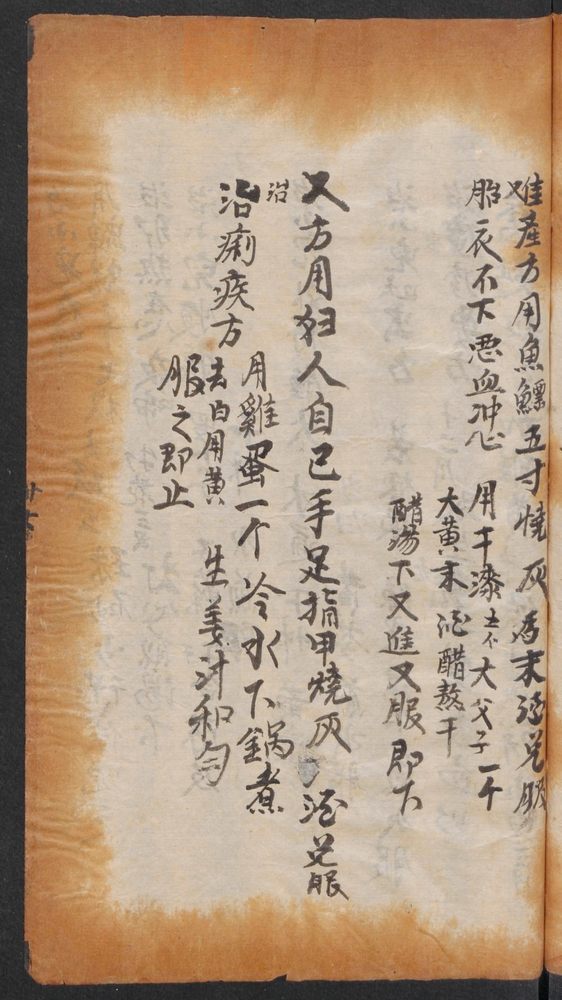 难產方用魚鰾五寸燒灰為末酒兑服
胎衣不下恶血冲心 用干漆五个大父子一个
大黄末酒醋熬干
醋湯下又進又服即下
又方用妇人自己手足指甲燒灰酒兑服
治
治痢疾方 用雞蛋一个冷水下鍋煮
去白用黄 生姜汁和匀
服之即止